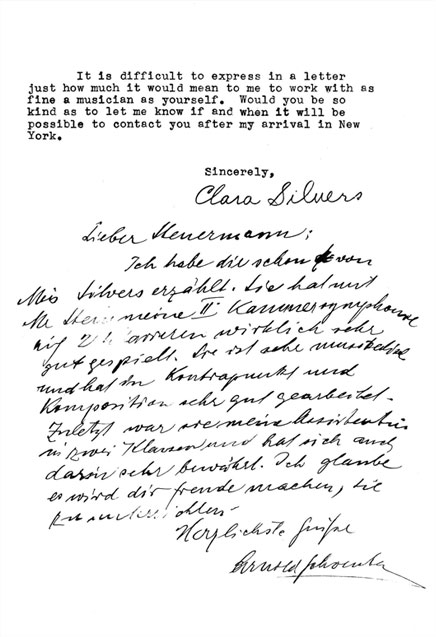 It is difficult to express in a letter
just how much it would mean to me to work with as
fine a musician as yourself. Would you be so
kind as to let me know if and when it will be
possible to contact you after my arrival in New
York.
Sincerely,
Clara Silvers
Lieber Steuermann;
Ich habe dir schon von
Miss Silvers erzählt. Sie hat mit
Mr Stein meine II Kammersymphonie
auf 2 Klavieren wirklich sehr
gut gespielt. Sie ist sehr musikalisch
und hat in Kontrapunkt und
Komposition sehr gut gearbeitet.
Zuletzt war sie meine Assistentin
in zwei Klassen und hat sich auch
darin sehr bewährt. Ich glaube
es wird dir freude machen, sie
zu unterrichten.
Herzlichste Grüsse
Arnold Schoenberg